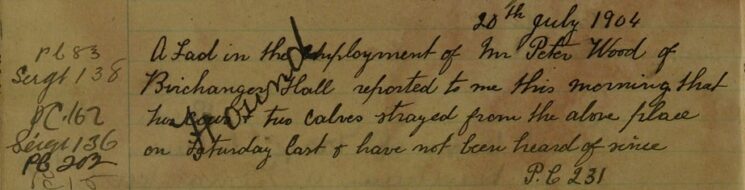 20th July 1904
pc 83
Sergt 138
PC. 162
Sergt 136
PC 202
A Lad in the employment of Mr Peter Wood of
Birchanger Hall reported to me this morning that
two cows & two calves strayed from the above place
on Saturday last & have not been heard of since
P.C 231
Found